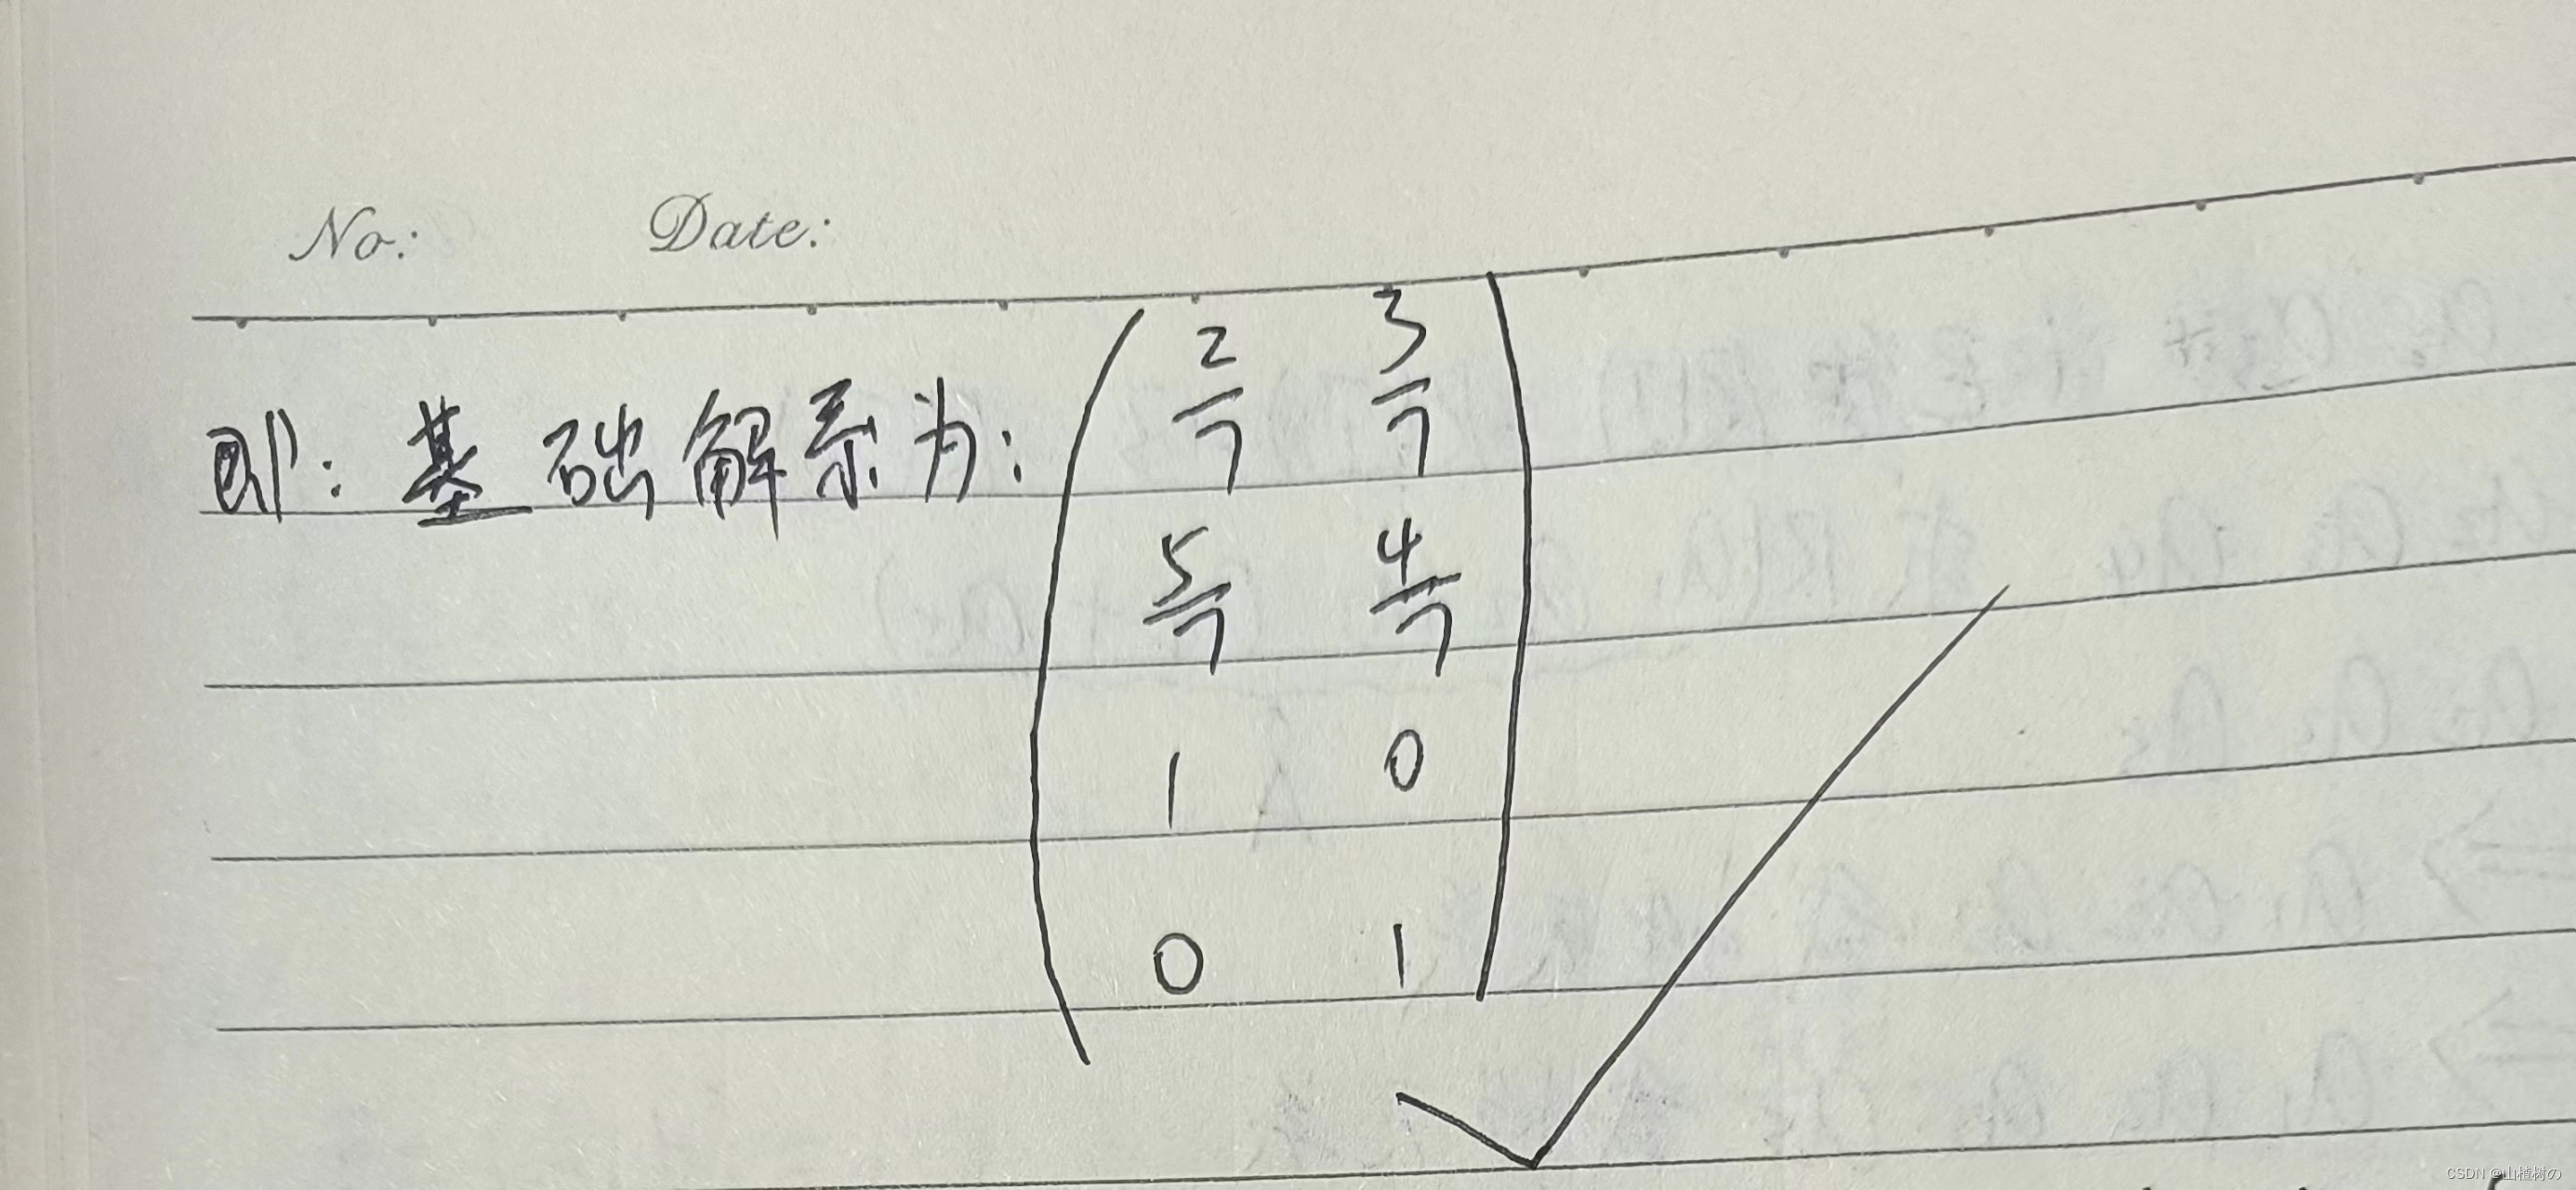 No: Date:
即: 基础解系为: 
2/7 3/7
5/7 4/7
1 0
0 1
CSDN @山楂树の